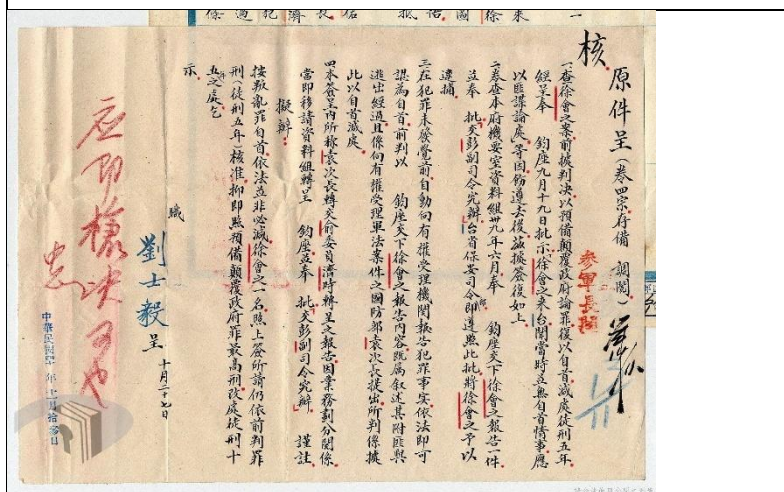 核
原件呈(卷四宗存備 調閱)
參軍長閱
一、查徐會之案前據判決以預備顛覆政府論罪復以自首減處徒刑五年
經呈奉 鈞座九月十九日批示「徐會之來台閒當時並無自首情事應
以匪諜論處」等因飭遵去後茲據簽復如上
二、卷查本府機要室資料組卅九年六月奉 鈞座交下徐會之報告一件
並奉 批「交彭副司令究辦」台省保安司令部即遵照此批將徐會之予以
逮捕
三、在犯罪未發覺前自動向有權受理機關報告犯罪事實依法即可
認為自首前判以 鈞座交下徐會之報告內容既屬叙述其附匪與
逃出經過且係向有權受理軍法案件之國防部袁次長提出所判係據
此以自首減處
四、本簽呈內所稱袁次長轉交前委員濟時轉呈之報告因業務劃分關係
當即移請資料組轉呈 鈞座並奉 批「交彭副司令究辦」 謹註
擬辦
按叛亂罪自首依法並非必減徐會之一名照上簽所請仍依前判罪
刑(徒刑五年)核准抑即照預備顛覆政府罪最高刑改處徒刑十
五年之處乞
示
職 劉士毅 呈 十月二十七日
应即槍决可也
中華民國 年十一月拾